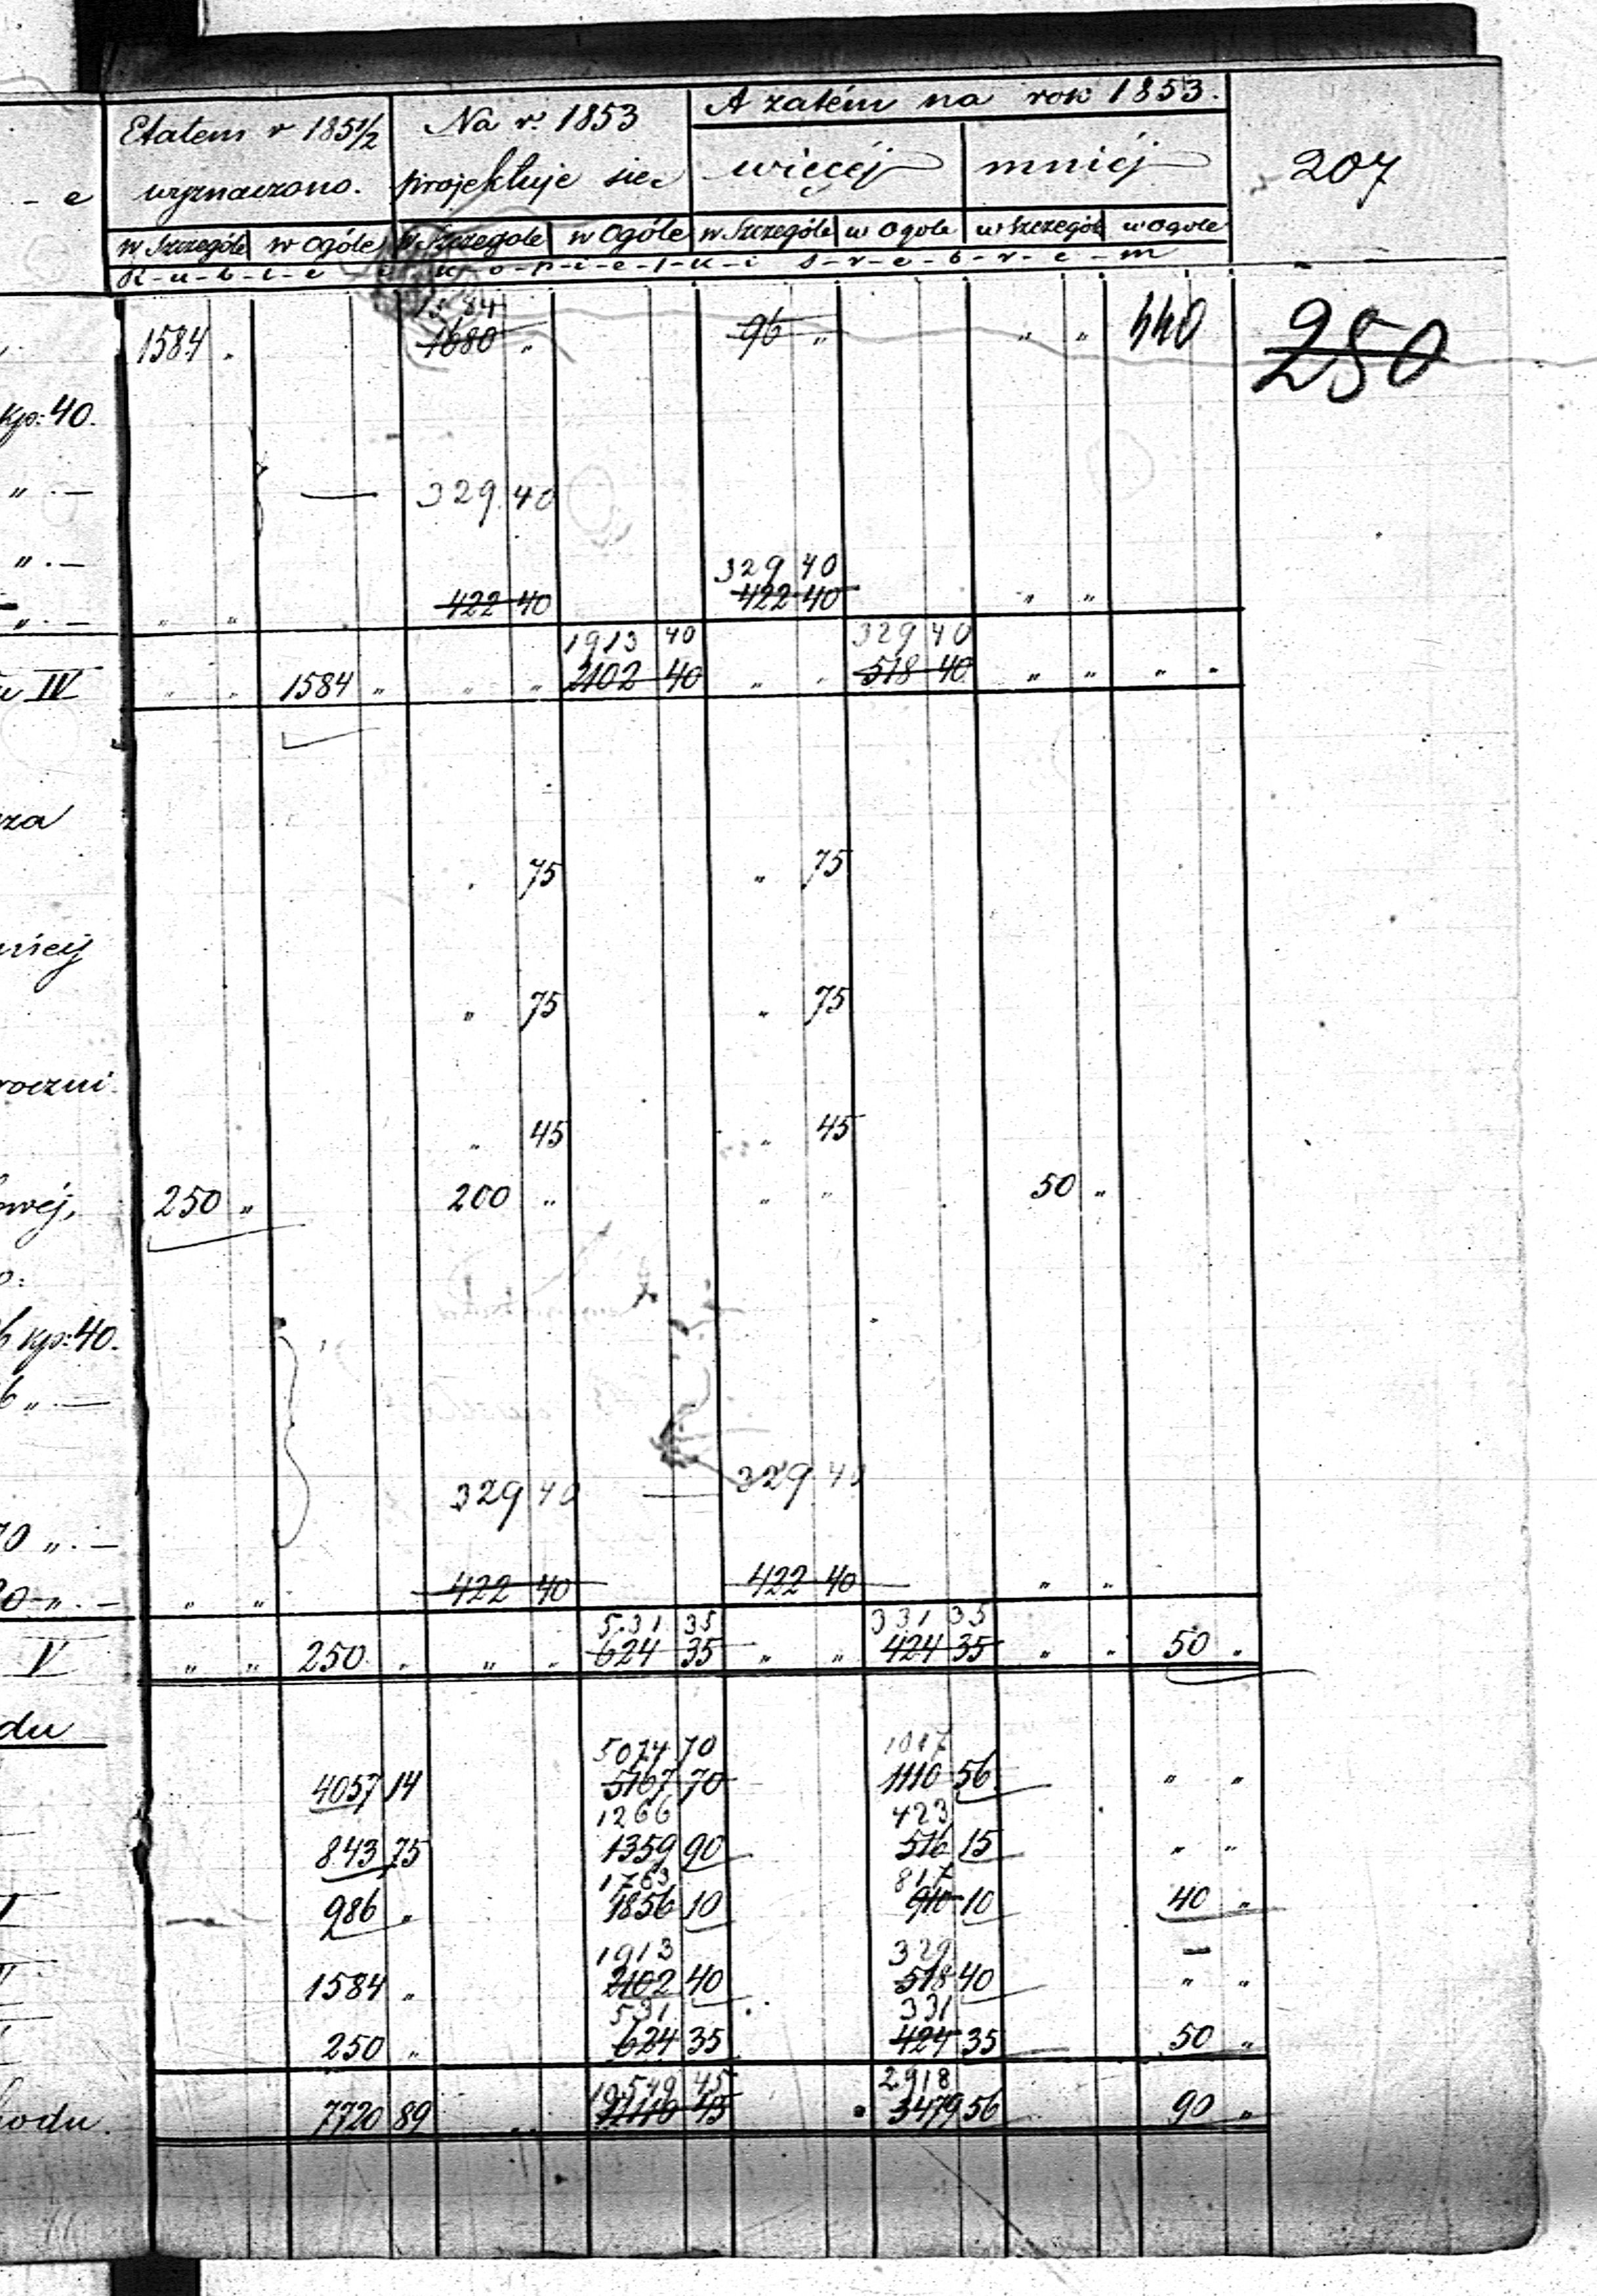 A zatém na rok 1853.
Etatem r 1851/2 Na r. 1853
- e wyznaczono. projektuje się więcéj mniéj 207
w Szczególe w Ogóle w Szczegole w Ogóle w Szczególe w Ogole w Szczegól w Ogole
R-u-b-l-e k-o-p-i-e-j-k-i s-r-e-b-r-e-m
1584
1584 „ 1680 „ 96 „ „ „ 440 250
kp: 40.
„ . — — 329 40
„ . —
329 40
„ . — „ „ 422 40 422 40 „ „
1913 40 329 40
IV „ „ 1584 „ „ „ 2102 40 „ „ 518 40 „ „ „ „
za
„ 75 „ 75
„ 75 „ 75
45 „ 45
250 „ 200 „ „ „ 50 „
o:
6 kp: 40.
6 „ . —
329 40 — 329 40
70 „ . —
„ . — „ „ 422 40 422 40 „ „
531 35 331 35
V „ „ 250 „ „ „ 624 35 „ „ 424 35 „ „ 50 „
du
5074 70 1017
4057 14 5167 70 1110 56 „ „
1266 423
843 75 1359 90 516 15 „ „
1763 817
986 „ 1856 10 910 10 40 „
1913 329 —
1584 „ 2102 40 518 40 „ „
531 331
250 „ 624 35 424 35 50 „
10549 45 2918
hodu. 7720 89 11110 45 3479 56 90 „